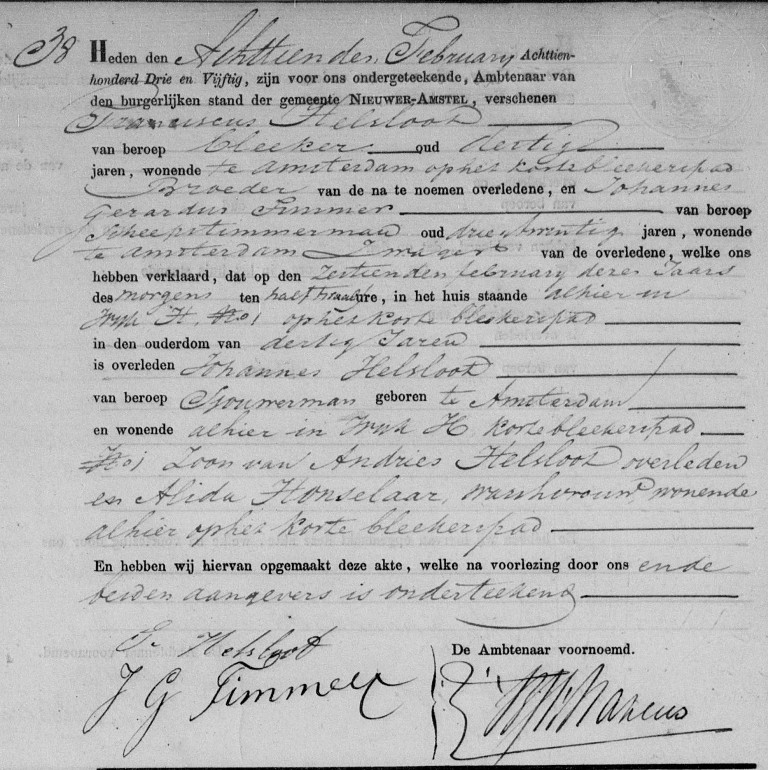 38 Heden den Achttienden February Achttien-
honderd Drie en Vijftig, zijn voor ons ondergeteekende, Ambtenaar van
den burgerlijken stand der gemeente NIEUWER-AMSTEL, verschenen
Franciscus Helsloot
van beroep bleeker oud dertig
jaren, wonende te Amsterdam op het korte bleekerspad
Broeder van de na te noemen overledene, en Johannes
Gerardus Timmer van beroep
Scheepstimmerman oud drie twintig jaren, wonende
te Amsterdam Zwager van de overledene, welke ons
hebben verklaard, dat op den zestienden february dezes Jaars
des morgens ten half twaalf ure, in het huis staande alhier in
Wyk H. No 1 op het korte bleekerspad
in den ouderdom van dertig Jaren
is overleden Johannes Helsloot
van beroep Sjouwerman geboren te Amsterdam
en wonende alhier in Wyk H korte bleekerspad
No 1 Zoon van Andries Helsloot overleden
en Alida Honselaar, waschvrouw, wonende
alhier op het korte bleekerspad
En hebben wij hiervan opgemaakt deze akte, welke na voorlezing door ons ende
beiden aangevers is onderteekend
Helsloot
De Ambtenaar voornoemd.
J G Timmer